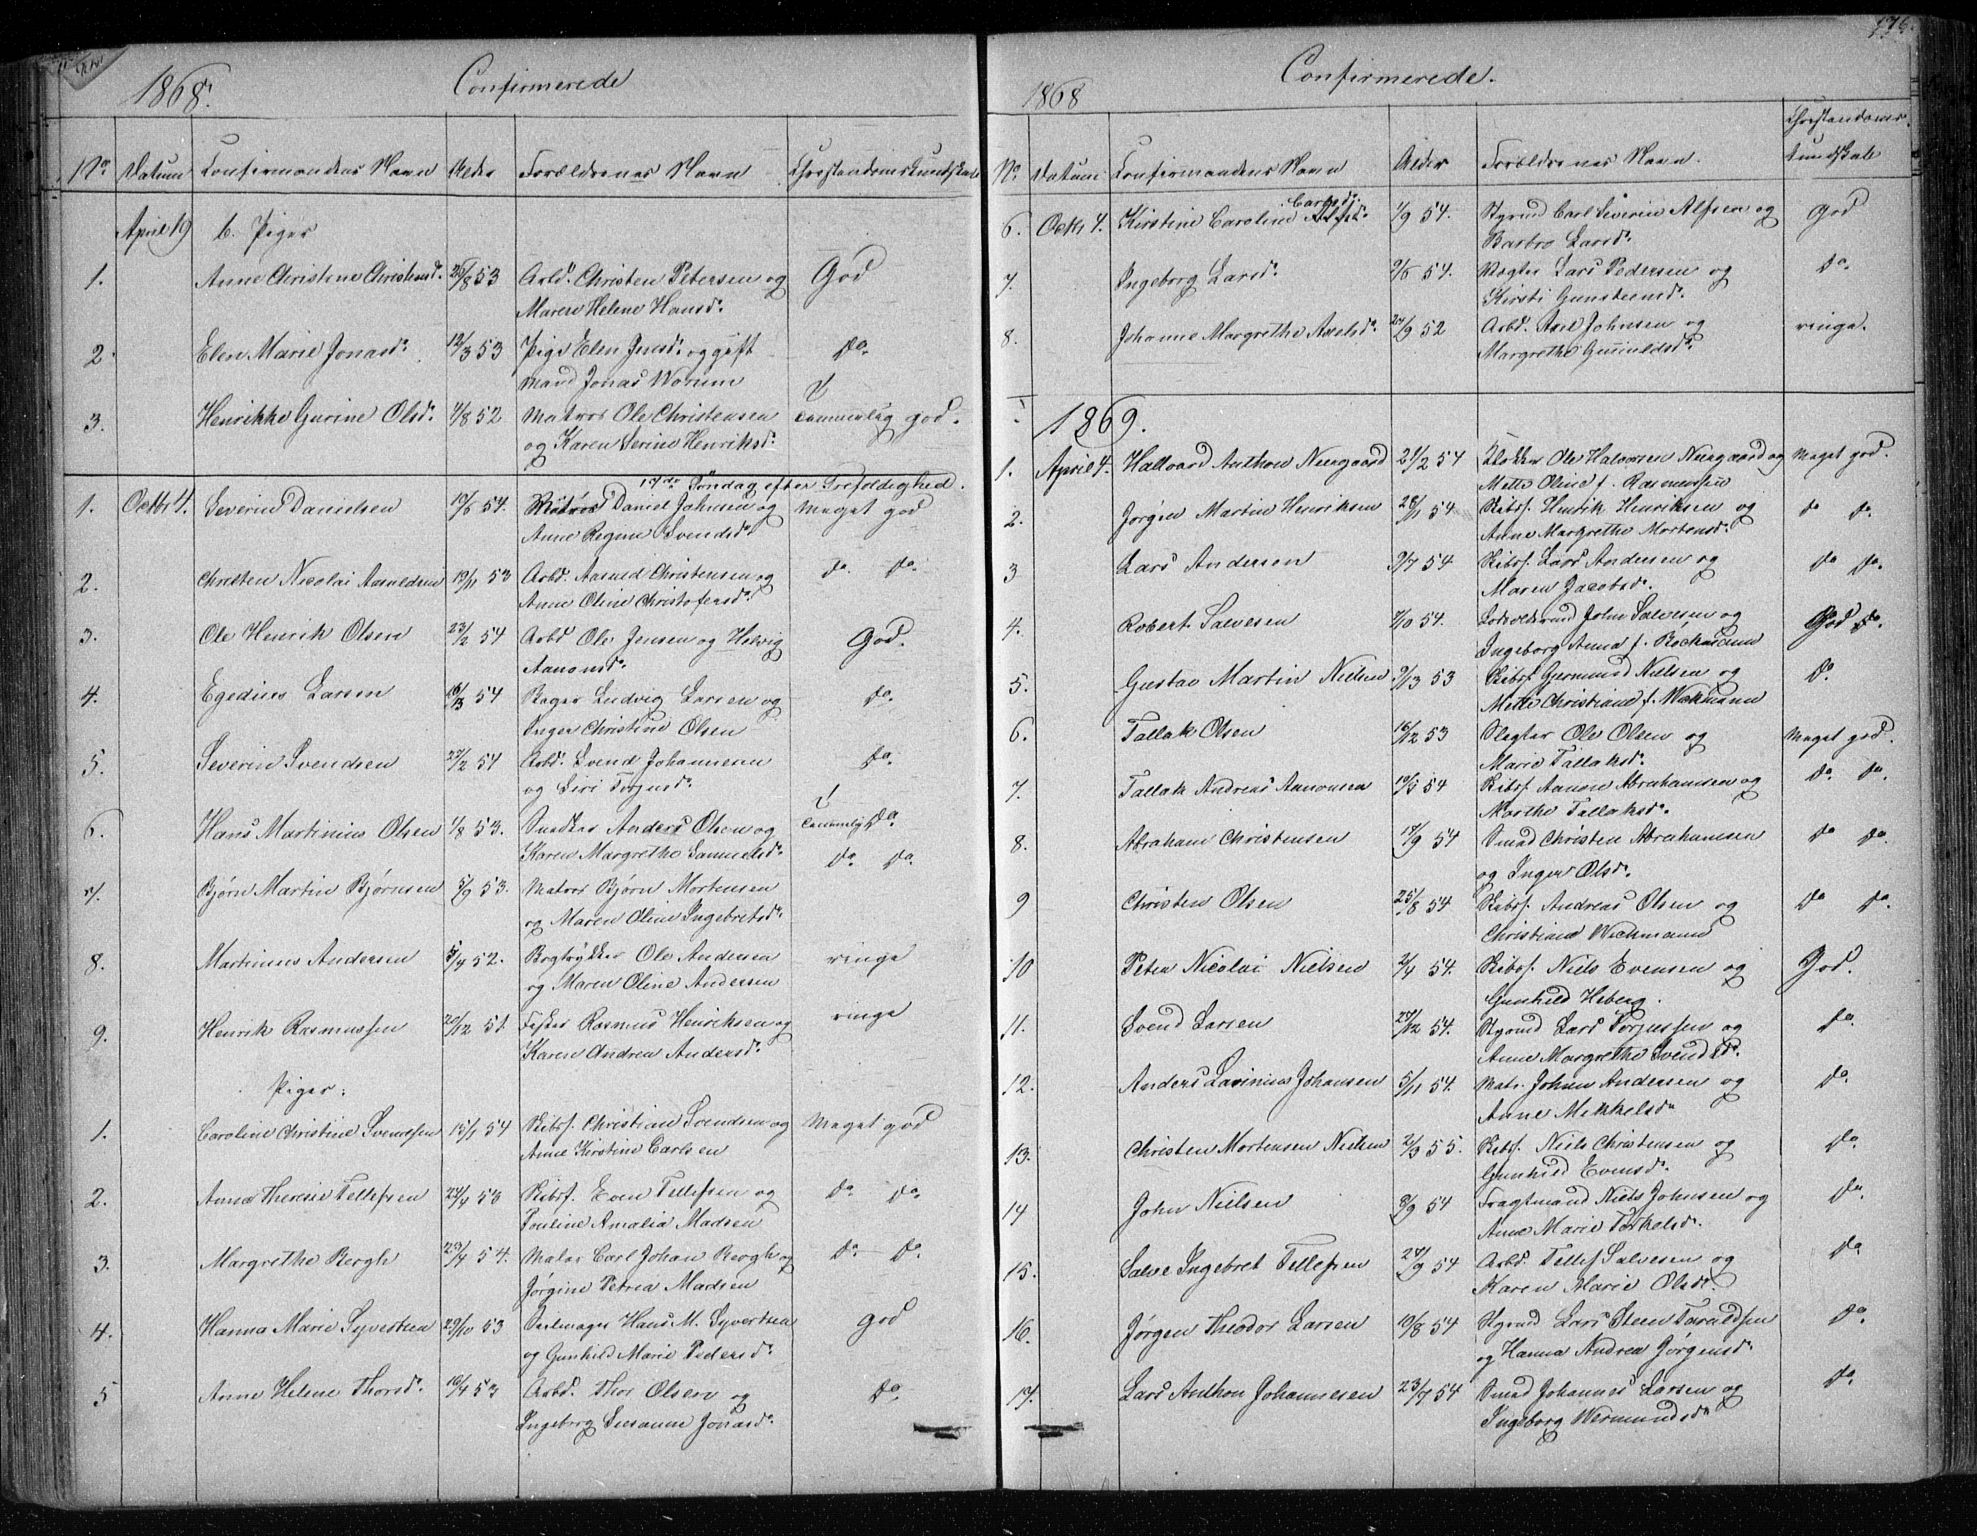 1868.
Confirmerede
No Datum Confirmandens Navn Alder Forældrenes Navn Christendomskundskab
April 19 b. Piger
1. Anne Christine Christensd. 25/8 53 Arbd. Christen Petersen og God
Maren Helene Hansd.
2. Elen Marie Jonasd. 12/3 53 Pige Elen Jensd. og gift do.
Mand Jonas Worum
3. Henrikke Gurine Olsd. 4/8 52 Matros Ole Christensen temmelig god.
og Karen Serine Henriksd.
17de Søndag efter Trefoldighed.
1. Octbr 4. Severin Danielsen 19/6 54. Matros Daniel Johnsen og Meget god
Anne Regine Svendsd.
2. Christen Nicolai Aaneldsen 19/11 53 Arbd. Christensen og do. do.
Anne Oline Christofersd.
3. Ole Henrik Olsen 23/2 54 Arbd Ole Jensen og Helvig God.
Aanonsd.
4. Egedius Larsen 54 Bager Ludvig Larsen og do.
Inger Christine Olsen
5. Severin Svendsen 27/2 54 Arbd. Svend Johannesen do.
og Siri Torjusd.
6. Hans Martinius Olsen 1/8 53. Snedker Anders Olsen og temmelig do.
Karen Margrethe Samuelsd.
do. do.
7. Bjørn Martin Bjørnsen 5/9 53. Matros Bjørn Mortensen
og Maren Oline Ingebretsd.
8. Martinius Andersen 5/4 52. Bogtrykker Ole Andersen ringe
og Maren Oline Andersen
9. Henrik Rasmussen 20/12 51. Fisker Rasmus Henriksen og ringe
Karen Andrea Andersd.
Piger.
1. Caroline Christine Svendsen 15/1 54 Skibsf. Christian Svendsen og Meget god
Anne Kirstine Carlsen
2. Anna Therese Tellefsen 24/4 53 Skibsf. Even Tellefsen og do. do.
Pauline Amalia Madsen
3. Margrethe Bergh 23/4 54. Maler Carl Johan Bergh og do. do.
Jørgine Petrea Madsen
4. Hanna Marie Syvertsen 29/10 53 Seilmager Hans M. Syvertsen god
og Gunhild Marie Pedersd.
5 Anne Helene Thorsd. 10/4 53 Arbd. Thor Olsen og do.
Ingeborg Susanne Jonasd.
176.
1868
Confirmerede.
No. Datum Confirmandens Navn Alder Forældrenes Navn. Christendoms-
kundskab
Carlsd.
6. Octbr 4. Kirstine Caroline 1/9 54. Styrmd Carl Severin Alfsen og God
Barbro Larsd.
7. Ingeborg Larsd. 9/6 54. Vægter Lars Pedersen og do.
Kirsti Gunsteensd.
8. Johanne Margrethe Axelsd. 24/9 52 Arbd. Axel Johnsen og ringe.
Margrethe Gunuldsd.
1869.
1. April 4. Hallvard Anthon Neergaard 21/2 54 Klokker Ole Halvorsen Neergaard og Meget god.
Mette Oline f. Rasmussen
2. Jørgen Martin Henriksen 28/11 54 Skibsf. Henrik Henriksen og do do.
Anne Margrethe Mortensd.
3 Lars Andersen 9/7 54 Skibsf. Lars Andersen og do do.
Maren Jacobsd.
4. Robert Salvesen 7/10 54. John Salvesen og God do.
Ingeborg Anna f.
5. Gustav Martin Nielsen 53 Skibsf. Germund Nielsen og do.
Mette Christiane f. Wichmann
6. Tallak Olsen 16/12 53 Slagter Ole Olsen og Meget god.
Marie Tallaksd.
7. Tallak Andreas Aanonsen 10/5 54 Skibsf. Aanon Abrahamsen og do do.
Marthe Tallaksd.
8. Abraham Christensen 17/9 54 Smed Christen Abrahamsen do do.
og Inger Olsd.
9 Christen Olsen 25/8 54 Skibsf. Andreas Olsen og do do.
Christiane Wichmann
10 Peter Nicolai Nielsen 2/4 54. Skibsf. Niels Evensen og God.
Gunhild Heberg.
11. Svend Larsen 24/12 54. Styrmd Lars Torjussen og do.
Anne Margrethe Svendsd.
12. Anders Lavinius Johansen 5/11 54. Matr. Johan Andersen og do
Anne Mikkelsd.
13. Christen Mortensen Nielsen 2/3 55. Skibsf. Niels Christensen og do
Gunhild Evensd.
14 John Nielsen 8/9 54 Fragtmand Niels Johnsen og do
Anne Marie Torkelsd.
15. Salve Ingebret Tellefsen 24/9 54 Arbd. Tellef Salvesen og do
Karen Marie Olsd.
16. Jørgen Theodor Larsen 10/8 54 Styrmd Lars Steen Taraldsen do.
og Hanna Andrea Jørgensd.
17. Lars Anthon Johannesen 23/7 54 Smed Johannes Larsen og do.
Ingeborg Wermundsd.